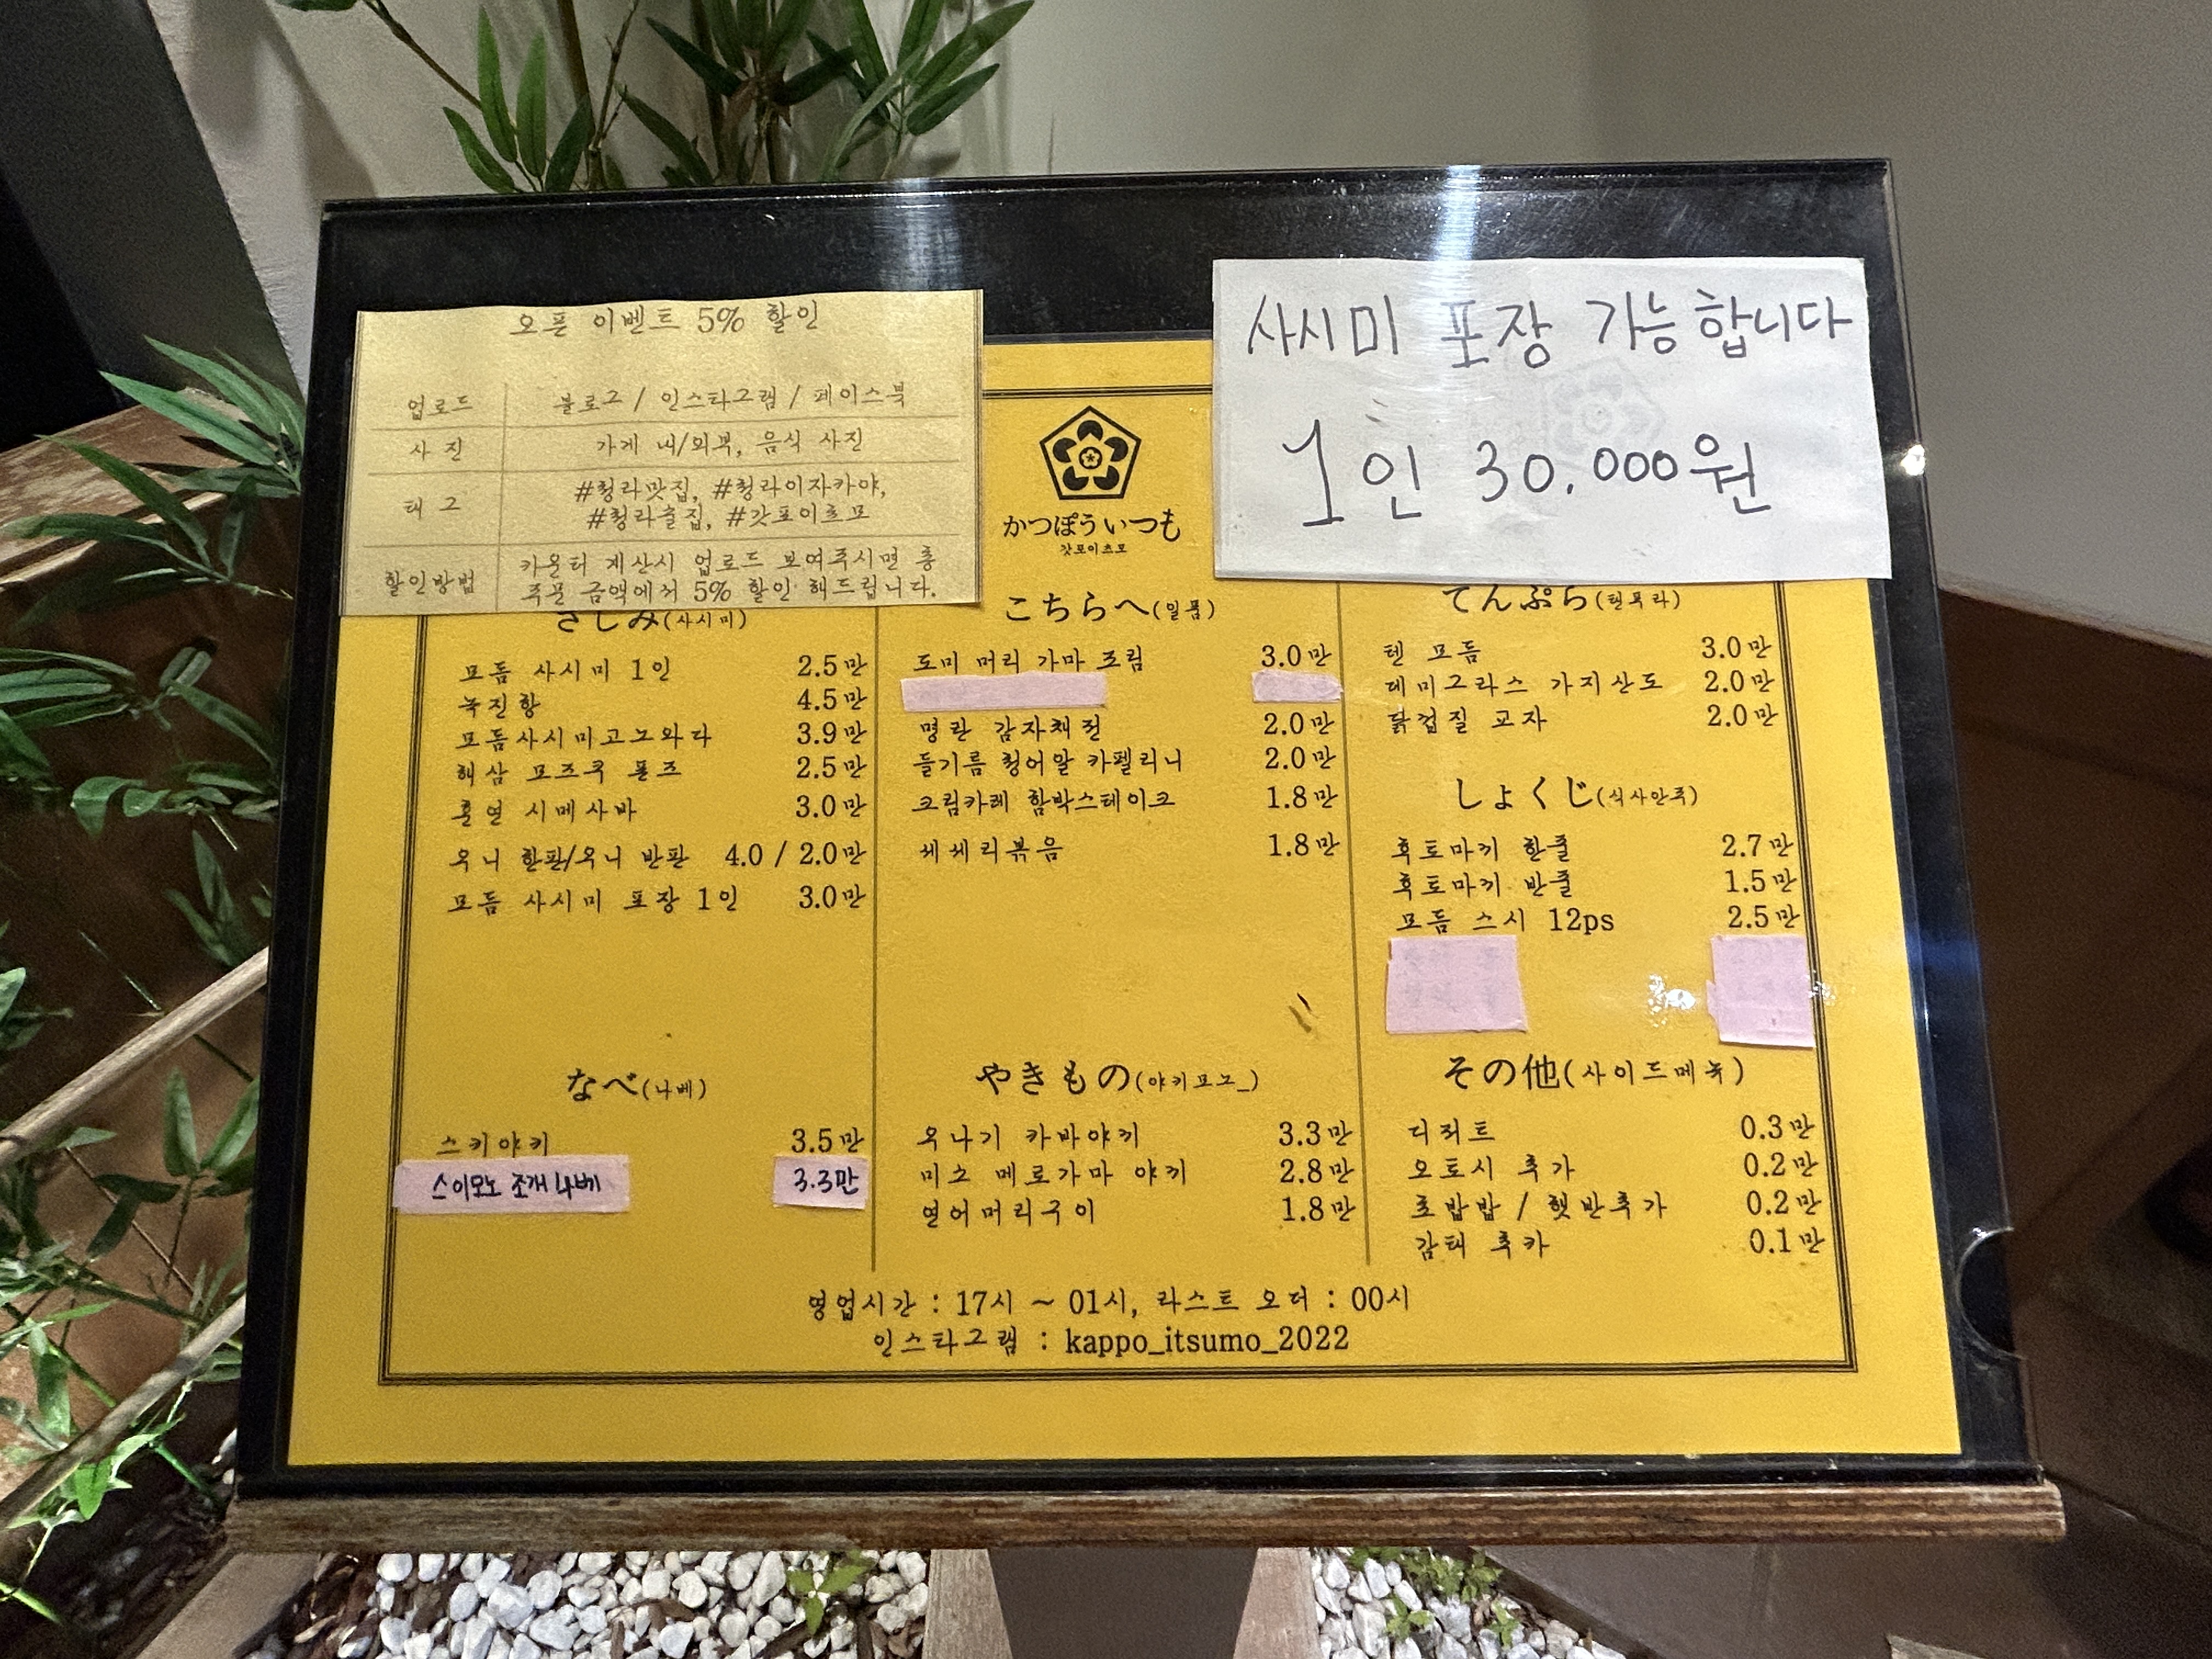 오픈 이벤트 5% 할인
업로드 블로그 / 인스타그램 / 페이스북
사진 가게 내/외부, 음식 사진
태그 #청라맛집, #청라이자카야,
#청라술집, #갓포이츠모
할인방법 카운터 계산시 업로드 보여주시면 총
주문 금액에서 5% 할인 해드립니다.
사시미 포장 가능합니다
1인 30.000원
かつぽういつも
갓포이츠모
さしみ(사시미)
모듬 사시미 1인 2.5만
녹진향 4.5만
모듬사시미고노와다 3.9만
해삼 모즈쿠 폰즈 2.5만
훈연 시메사바 3.0만
우니 한판/우니 반판 4.0 / 2.0만
모듬 사시미 포장 1인 3.0만
なべ(나베)
스키야키 3.5만
스이모노 조개 나베 3.3만
こちらへ(일품)
도미 머리 가마 조림 3.0만
명란 감자채전 2.0만
들기름 청어알 카펠리니 2.0만
크림카레 함박스테이크 1.8만
세세리볶음 1.8만
やきもの(야키모노_)
우나기 카바야끼 3.3만
미소 메로가마 야끼 2.8만
연어머리구이 1.8만
てんぷら(텐푸라)
텐 모듬 3.0만
데미그라스 가지산도 2.0만
닭껍질 교자 2.0만
しょくじ(식사안주)
후토마끼 한줄 2.7만
후토마끼 반줄 1.5만
모듬 스시 12ps 2.5만
その他(사이드메뉴)
디저트 0.3만
오토시 추가 0.2만
초밥밥 / 햇반추가 0.2만
감태 추카 0.1만
영업시간 : 17시 ~ 01시, 라스트 오더 : 00시
인스타그램 : kappo_itsumo_2022